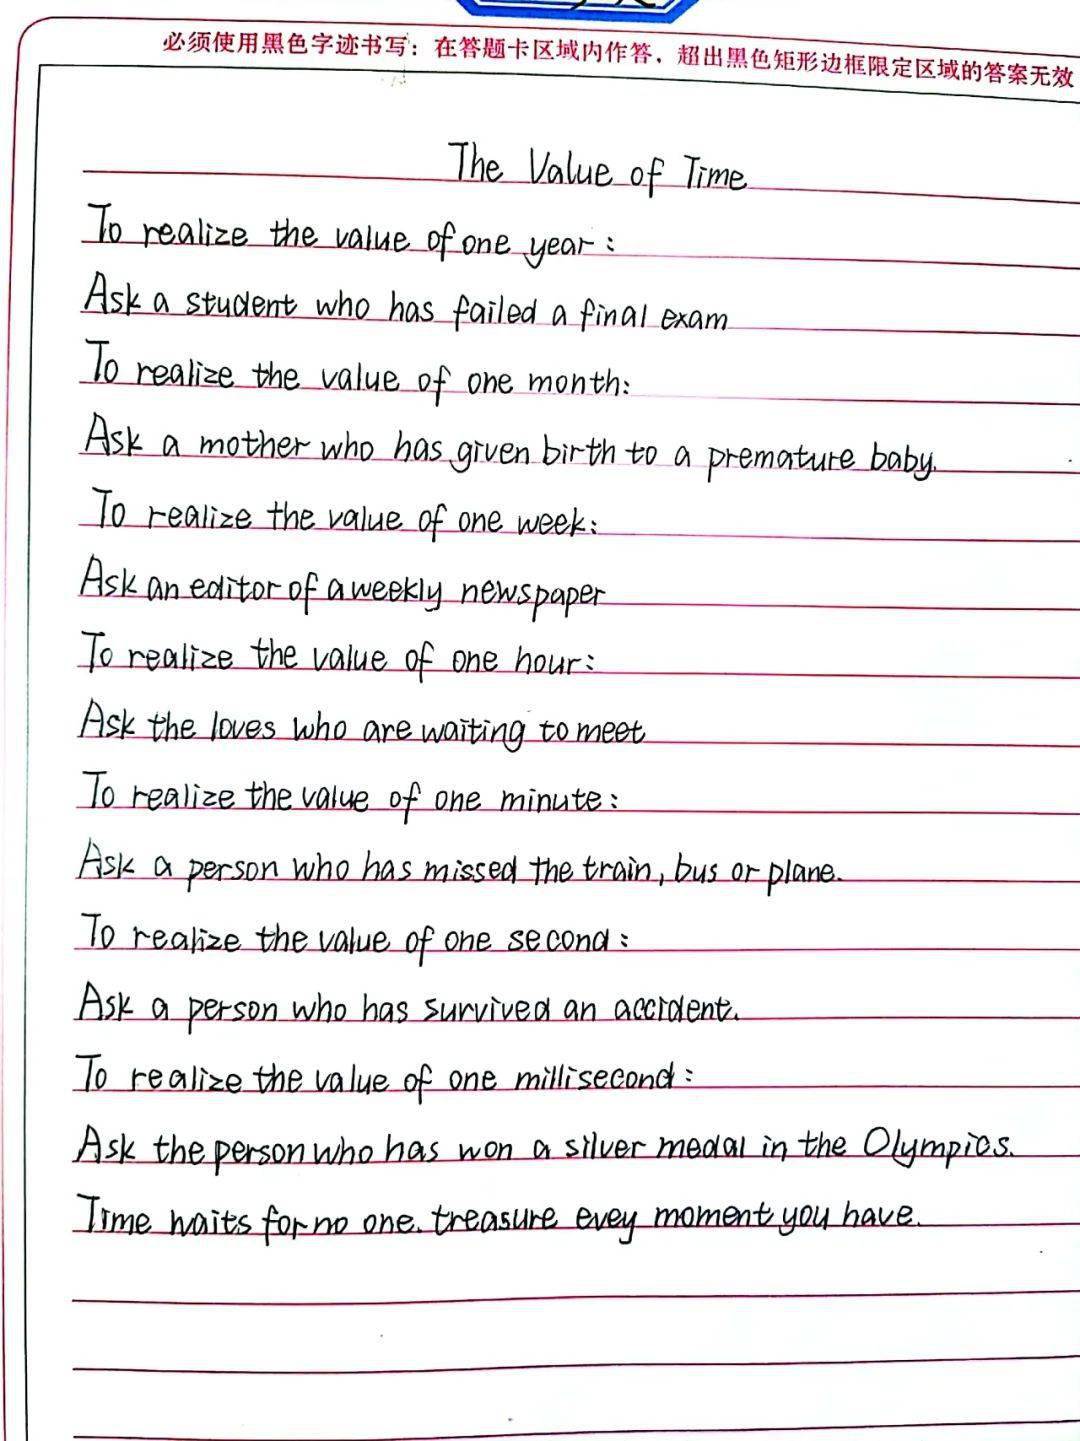 必须使用黑色字迹书写：在答题卡区域内作答，超出黑色矩形边框限定区域的答案无效
The Value of Time
To realize the value of one year:
Ask a student who has failed a final exam
To realize the value of one month:
Ask a mother who has given birth to a premature baby.
To realize the value of one week:
Ask an editor of a weekly newspaper
To realize the value of one hour:
Ask the loves who are waiting to meet
To realize the value of one minute:
Ask a person who has missed the train, bus or plane.
To realize the value of one second:
Ask a person who has survived an accident.
To realize the value of one millisecond:
Ask the person who has won a silver medal in the Olympics.
Time waits for no one. treasure evey moment you have.